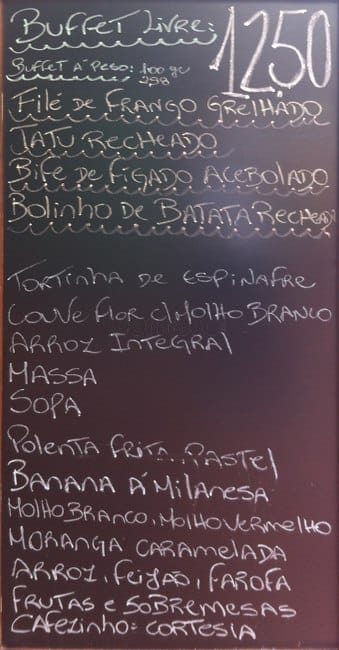 BUFFET LIVRE: 12,50
BUFFET A' PESO: 100 gr
2,98
FILÉ DE FRANGO GRELHADO
TATU RECHEADO
BIFE DE FIGADO ACEBOLADO
BOLINHO DE BATATA RECHEADA
TORTINHA DE ESPINAFRE
COUVE FLOR C/MOLHO BRANCO
ARROZ INTEGRAL
MASSA
SOPA
POLENTA FRITA, PASTEL
BANANA Á MILANESA
MOLHO BRANCO, MOLHO VERMELHO
MORANGA CARAMELADA
ARROZ, FEIJÃO, FAROFA
FRUTAS E SOBREMESAS
CAFEZINHO: CORTESIA